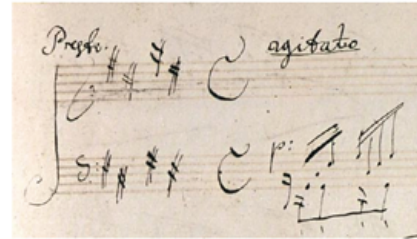 Presto. agitato
p: